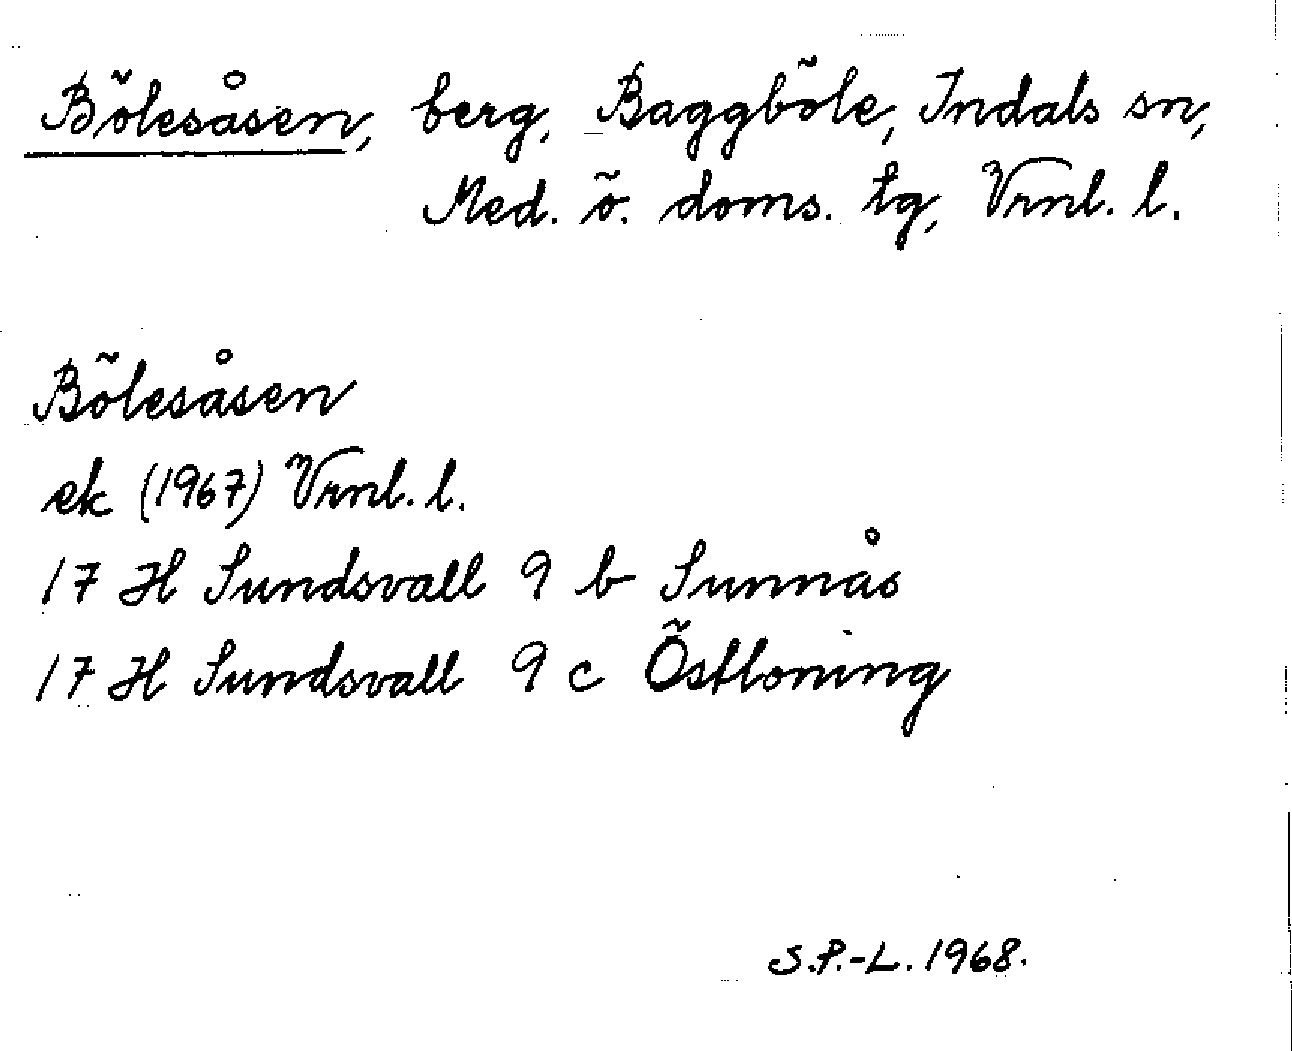 Bölesåsen, berg, Baggböle, Indals sn,
Med. ö. doms. tg, Vrnl. l.
Bölesåsen
ek (1967) Vrnl. l.
17 H Sundsvall 9 b Sunnås
17 H Sundsvall 9 c Östloning
S.P.-L. 1968.